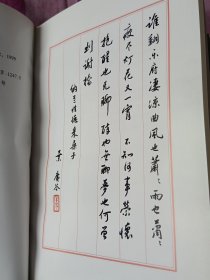 谁翻乐府凄凉曲風也蕭〻雨也蕭〻
瘦尽灯花又一宵 不知何事萦懷
抱醒也无聊 醉也無聊梦也何曾
到谢桥
纳兰性德采桑子
1999